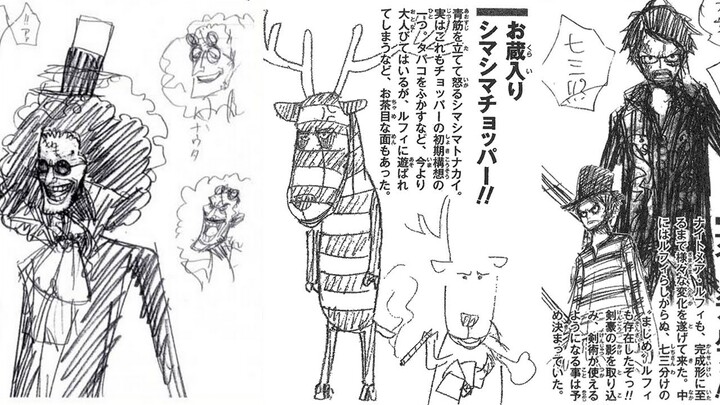 お蔵入り
シマシマチョッパー!!
青筋を立てて怒るシマシマトナカイ。
実はこれもチョッパーの初期構想の
一つ。タバコをふかすなど、今より
大人びてはいるが、ルフィに遊ばれ
てしまうなど、お茶目な面もあった。
七三!!
ナイトメア・ルフィも、完成形に至
るまで様々な変化を遂げて来た。中
にはルフィらしからぬ、七三分けの
“まじめ”ルフィ
も存在したぞっ!!
剣豪の影を取り込
み、剣術が使える
ようになる事は予
め決まっていた。